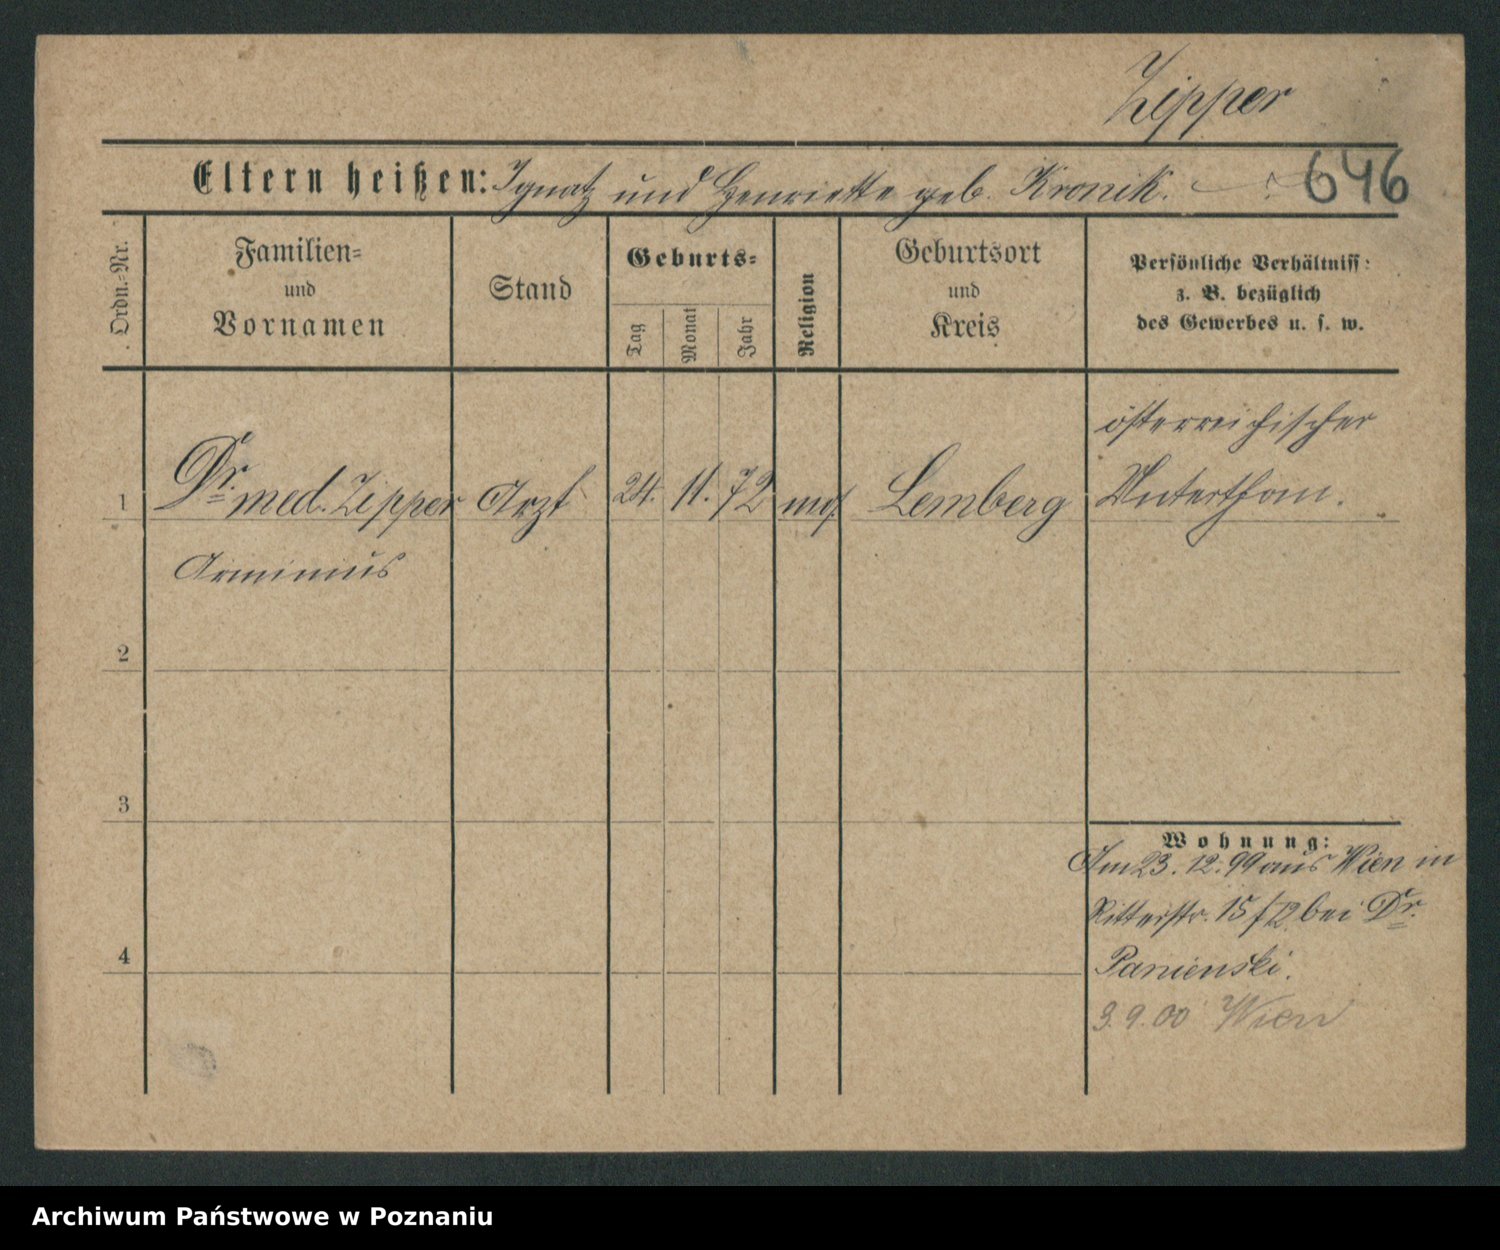 Zipper
Eltern heißen: Ignatz und Henriette geb. Kronik. 646
Ordn.-Nr.
Familien-
und
Vornamen
Stand
Geburts-
Tag
Monat
Jahr
Religion
Geburtsort
und
Kreis
Persönliche Verhältniss:
z. B. bezüglich
des Gewerbes u. s. w.
österreichischer
1 Dr. med. Zipper Arzt 24. 11. 72 mos. Lemberg Unterthan.
Arminius
2
3
Wohnung:
Am 23. 12. 99 aus Wien in
Ritterstr. 15/ bei Dr.
4 Panienski.
3.9.00 Wien
Archiwum Państwowe w Poznaniu